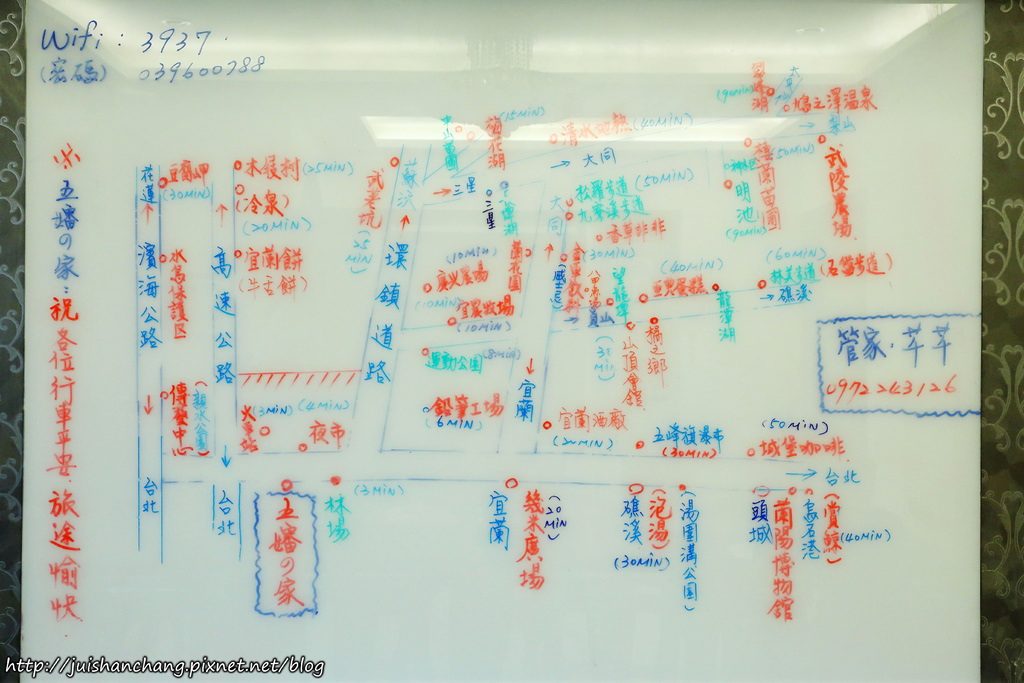 Wifi : 3937.
(密碼) 039600788
※五嬸の家:祝各位行車平安.旅途愉快.
花蓮
濱海公路
台北
豆腐岬
(30MIN)
傳藝中心
(親水公園)
高速公路
台北
木屐村(25MIN)
(冷泉)
(20MIN)
宜蘭餅
(牛舌餅)
火車站
(3MIN)
(4MIN)
夜市
武荖坑
(25MIN)
蘇澳
環鎮道路
中山
梅花湖
(15MIN)
三星
三星
清水地熱(40MIN)
大同
大同
松羅步道
(50MIN)
九寮溪步道
香草啡啡
(30MIN)
(10MIN)
(10MIN)
宜農牧場
(10MIN)
運動公園
(8MIN)
蘭花園
員山
望龍埤
(40MIN)
龍潭湖
橘之鄉
山頂會館
宜蘭
鉛筆工場
(6MIN)
宜蘭酒廠
(20MIN)
五峰旗瀑布
(30MIN)
(90MIN)
太平山
鳩之澤温泉
梨山
(50MIN)
武陵農場
明池
(90MIN)
(60MIN)
林美步道
(石磐步道)
礁溪
管家.芊芊
0972243126
(50MIN)
城堡咖啡
台北
五嬸の家
林場
(3MIN)
宜蘭
幾米廣場
(20MIN)
礁溪
(泡湯)
(30MIN)
(湯圍溝公園)
頭城
蘭陽博物館
烏石港
(賞鯨)
(40MIN)
http://juishanchang.pixnet.net/blog